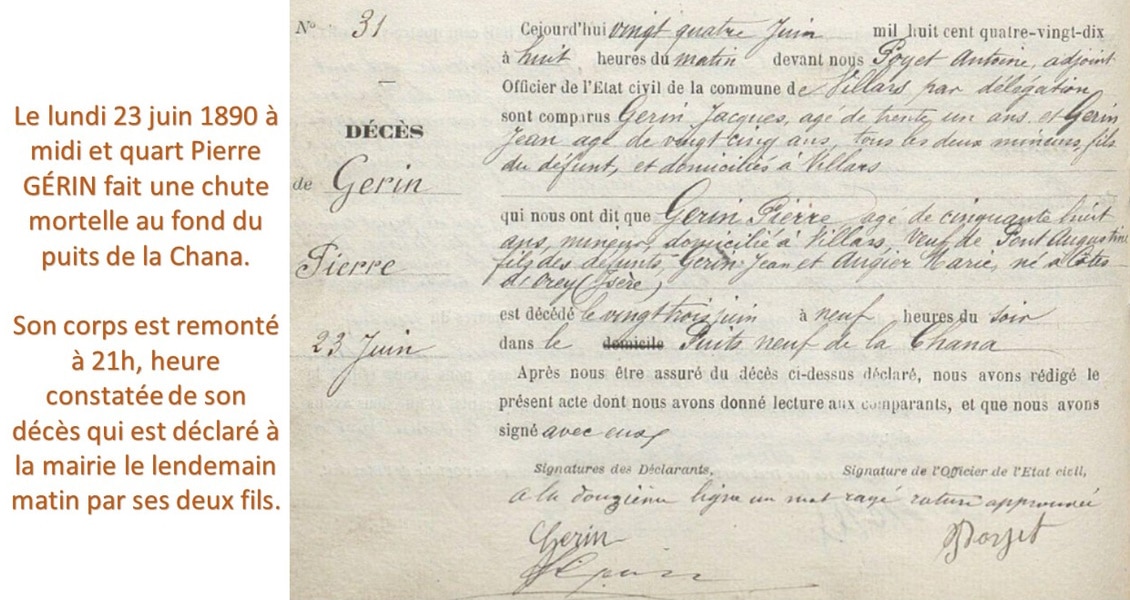 Le lundi 23 juin 1890 à
midi et quart Pierre
GÉRIN fait une chute
mortelle au fond du
puits de la Chana.
Son corps est remonté
à 21h, heure
constatée de son
décès qui est déclaré à
la mairie le lendemain
matin par ses deux fils.
N° 31
DÉCÈS
de Gerin
Pierre
23 Juin
Cejourd'hui vingt quatre Juin mil huit cent quatre-vingt-dix
à huit heures du matin devant nous Poyet Antoine, adjoint
Officier de l'Etat civil de la commune de Villars, par délégation
sont comparus Gerin Jacques, agé de trente un ans et Gerin
Jean agé de vingt cinq ans, tous les deux mineurs, fils
du défunt, et domiciliés à Villars
qui nous ont dit que Gerin Pierre agé de cinquante huit
ans, mineur, domicilié à Villars, Veuf de Pont Augustine
fils des défunts, Gerin Jean et Augier Marie, né à Côtes
d'Arey (Isère)
est décédé le vingt trois juin à neuf heures du soir
dans le domicile Puits neuf de la Chana
Après nous être assuré du décès ci-dessus déclaré, nous avons rédigé le
présent acte dont nous avons donné lecture aux comparants, et que nous avons
signé avec eux
Signatures des Déclarants, Signature de l'Officier de l'Etat civil,
a la douzième ligne un mot rayé rature approuvée
Gerin Poyet
Gerin